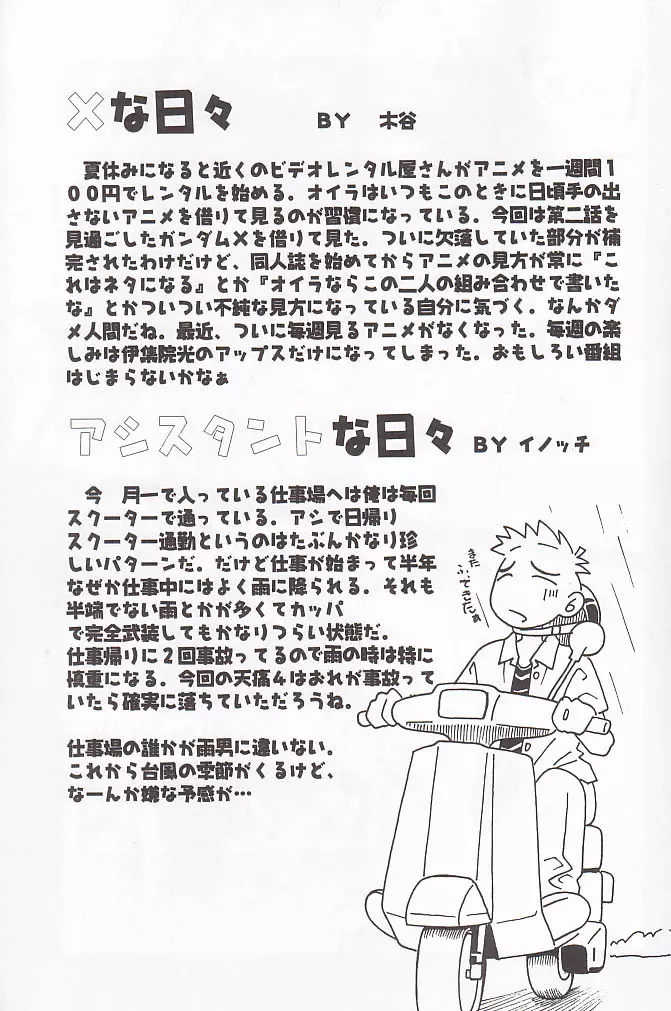 ×な日々 BY 木谷
夏休みになると近くのビデオレンタル屋さんがアニメを一週間1
００円でレンタルを始める。オイラはいつもこのときに日頃手の出
さないアニメを借りて見るのが習慣になっている。今回は第二話を
見過ごしたガンダム×を借りて見た。ついに欠落していた部分が補
完されたわけだけど、同人誌を始めてからアニメの見方が常に『こ
れはネタになる』とか『オイラならこの二人の組み合わせで書いた
な』とかついつい不純な見方になっている自分に気づく。なんかダ
メ人間だね。最近、ついに毎週見るアニメがなくなった。毎週の楽
しみは伊集院光のアップスだけになってしまった。おもしろい番組
はじまらないかなぁ
アシスタントな日々 BY イノッチ
今 月一で入っている仕事場へは俺は毎回
スクーターで通っている。アシで日帰り
スクーター通勤というのはたぶんかなり珍
しいパターンだ。だけど仕事が始まって半年
なぜか仕事中にはよく雨に降られる。それも
半端でない雨とかが多くてカッパ
で完全武装してもかなりつらい状態だ。
仕事帰りに２回事故ってるので雨の時は特に
慎重になる。今回の天痛４はおれが事故って
いたら確実に落ちていただろうね。
仕事場の誰かが雨男に違いない。
これから台風の季節がくるけど、
なーんか嫌な予感が…
また
ふってきたぁ